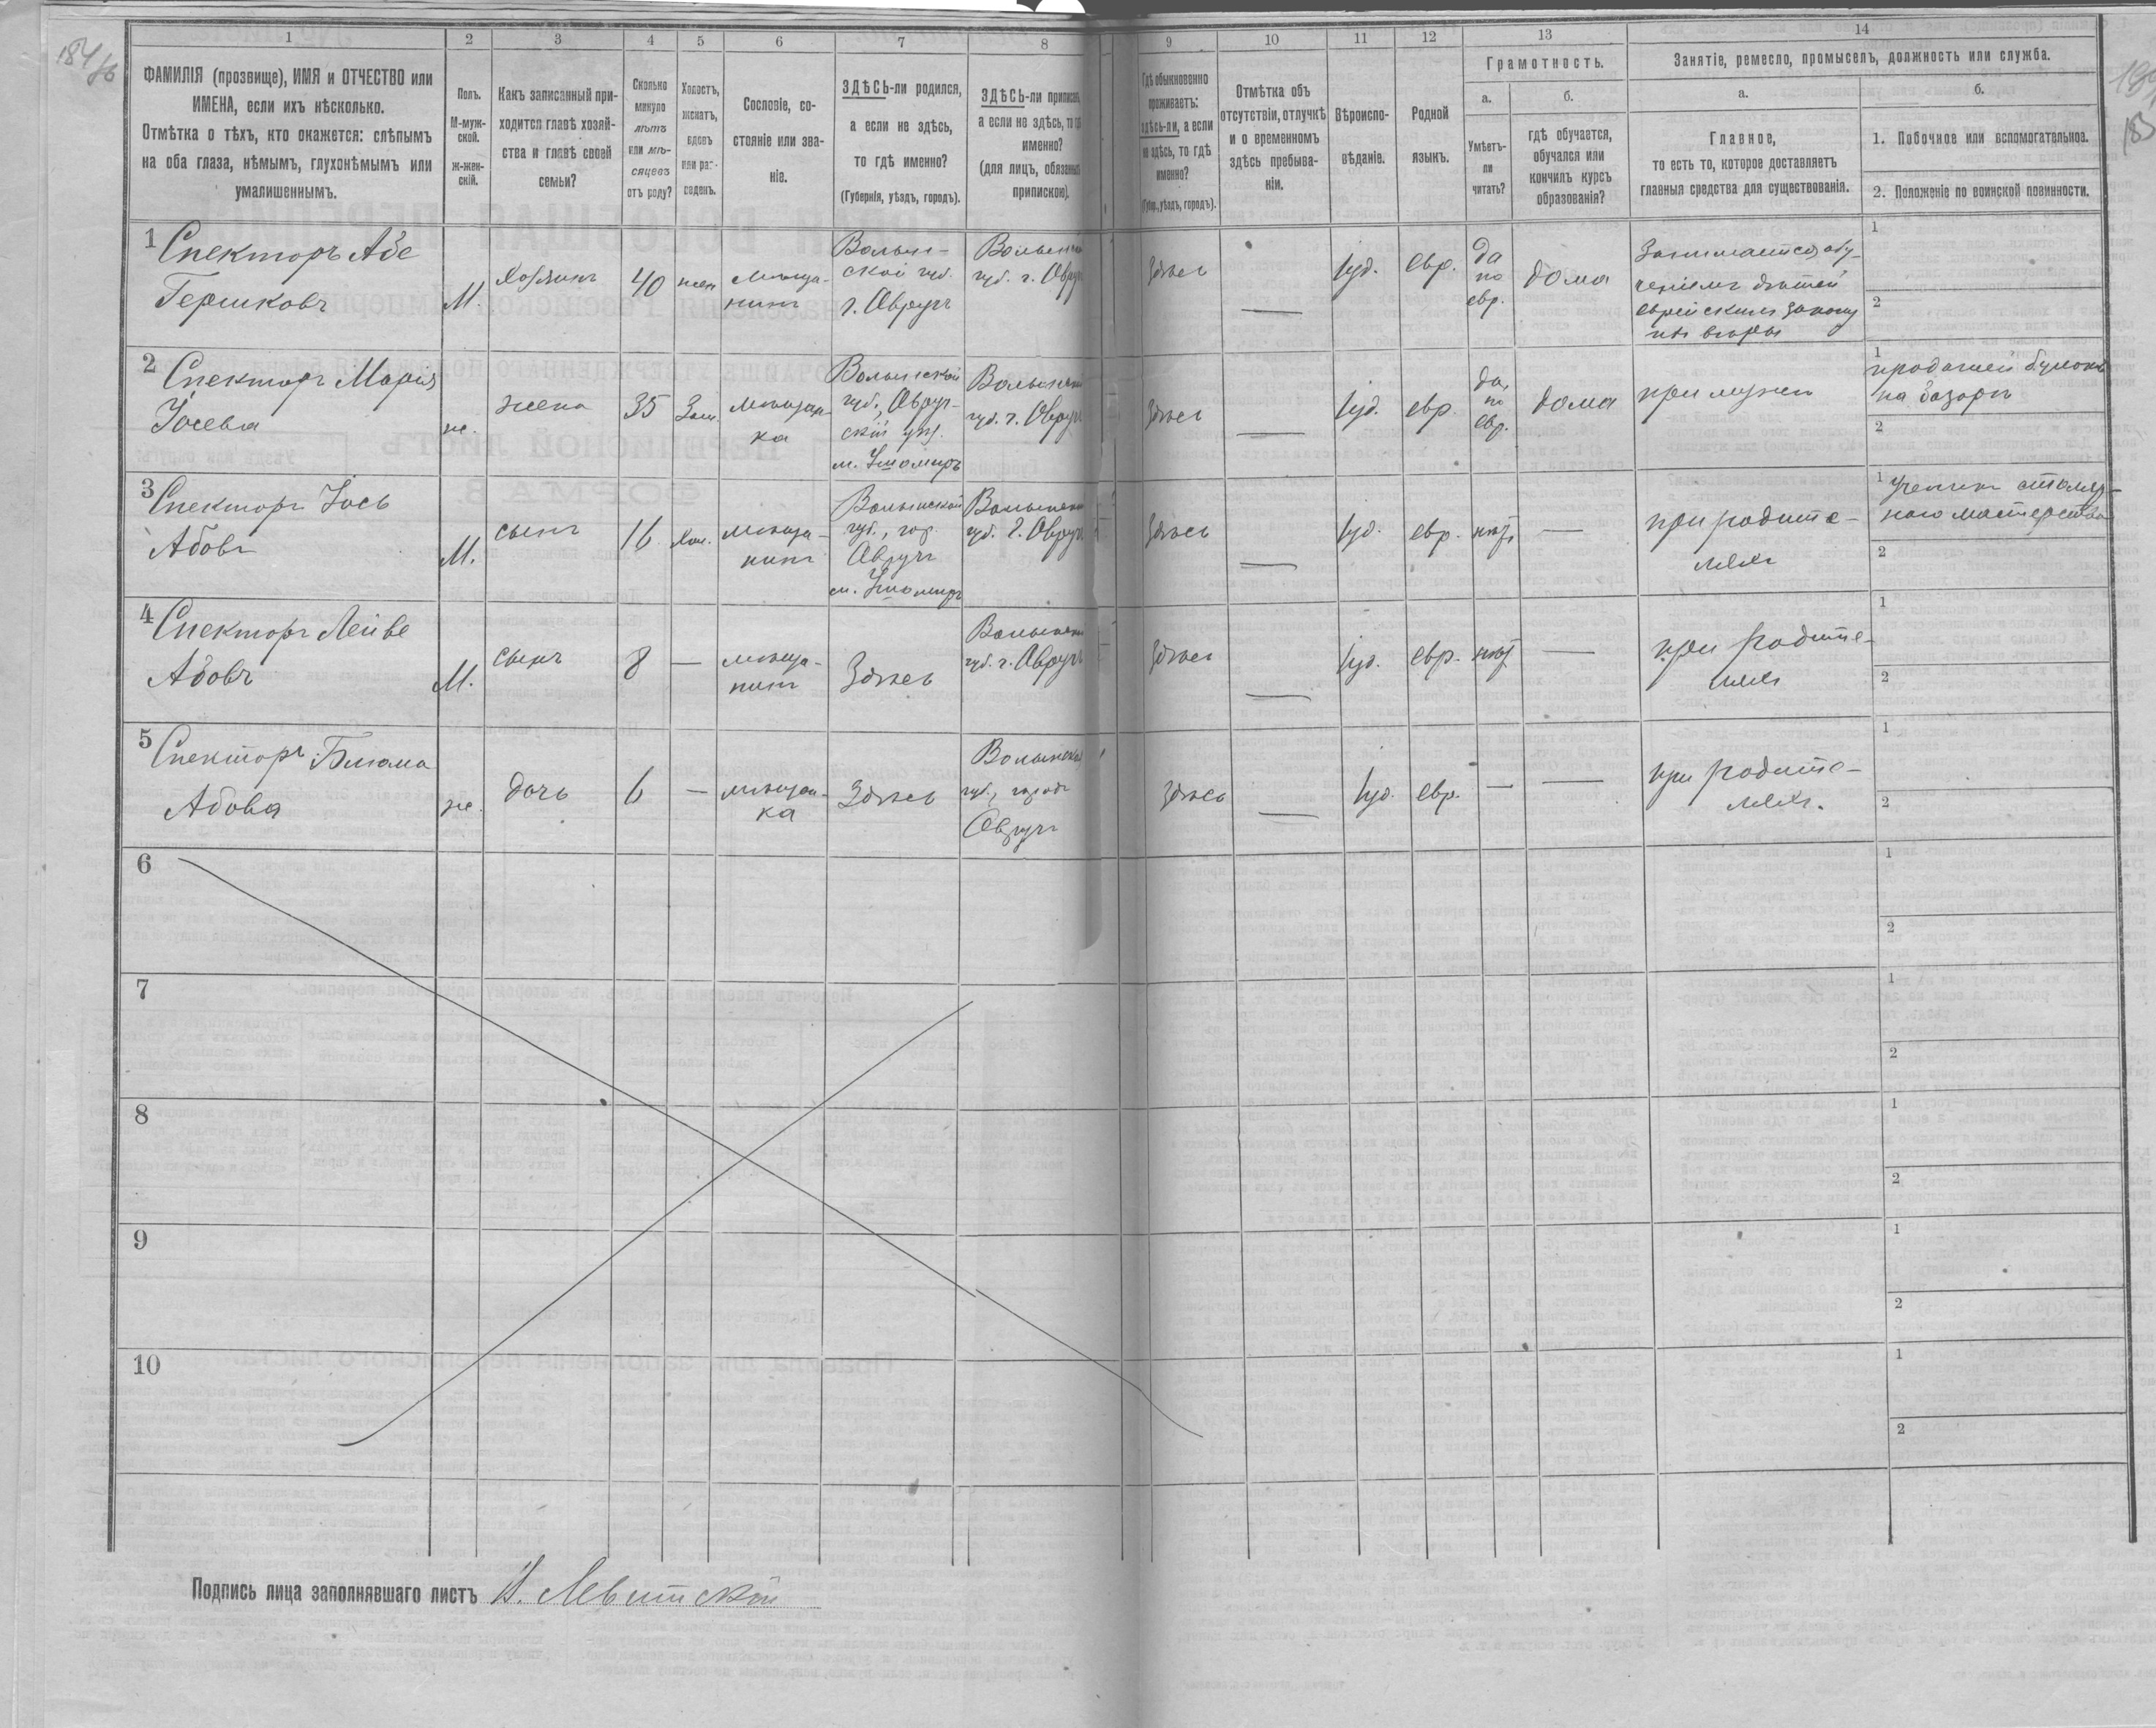 184об
1 2 3 4 5 6 7 8 9 10 11 12 13 14
ФАМИЛІЯ (прозвище), ИМЯ и ОТЧЕСТВО или
ИМЕНА, если ихъ нѣсколько.
Отмѣтка о тѣхъ, кто окажется: слѣпымъ
на оба глаза, нѣмымъ, глухонѣмымъ или
умалишеннымъ.
Полъ.
М-муж-
ской.
ж-жен-
скій.
Какъ записанный при-
ходится главѣ хозяй-
ства и главѣ своей
семьи?
Сколько
минуло
лѣтъ
или мѣ-
сяцевъ
отъ роду?
Холостъ,
женатъ,
вдовъ
или раз-
веденъ.
Сословіе, со-
стояніе или зва-
ніе.
ЗДѢСЬ-ли родился,
а если не здѣсь,
то гдѣ именно?
(Губернія, уѣздъ, городъ).
ЗДѢСЬ-ли приписанъ,
а если не здѣсь, то гдѣ
именно?
(для лицъ, обязанныхъ
припискою).
Гдѣ обыкновенно
проживаетъ:
здѣсь-ли, а если
не здѣсь, то гдѣ
именно?
(Губер., уѣздъ, городъ).
Отмѣтка объ
отсутствіи, отлучкѣ
и о временномъ
здѣсь пребыва-
ніи.
Вѣроиспо-
вѣданіе.
Родной
языкъ.
Грамотность.
а.
Умѣетъ-
ли
читать?
б.
гдѣ обучается,
обучался или
кончилъ курсъ
образованія?
Занятіе, ремесло, промыселъ, должность или служба.
а.
Главное,
то есть то, которое доставляетъ
главныя средства для существованія.
б.
1. Побочное или вспомогательное.
2. Положеніе по воинской повинности.
1
Спекторъ Абе
Гершковъ
М.
Хозяинъ
40
жен
Мѣща-
нинъ
Волын-
ской губ.
г. Овручъ
Волынской
губ. г. Овручъ
Здѣсь
—
Іуд.
евр.
да
по
евр.
дома
Занимается обу-
ченіемъ дѣтей
еврейскимъ закону
1
2
2
Спекторъ Марія
Іосева
ж.
жена
35
Зам.
мѣщан-
ка
Волынской
губ., Овруч-
скій уѣз.
м. Ушомиръ
Волынской
губ. г. Овручъ
Здѣсь
—
Іуд.
евр.
да,
по
евр.
дома
при мужѣ
1
продажей булокъ
на базарѣ
2
3
Спекторъ Іось
Абовъ
М.
сынъ
16
Хол.
мѣща-
нинъ
Волынской
губ., гор.
Овручъ
м. Ушомиръ
Волынской
губ. г. Овручъ
Здѣсь
—
Іуд.
евр.
нѣтъ
—
при родите-
ляхъ
1
Ученикъ столяр-
наго мастерства
2
4
Спекторъ Лейве
Абовъ
М.
сынъ
8
—
мѣща-
нинъ
Здѣсь
Волынской
губ. г. Овручъ
Здѣсь
—
Іуд.
евр.
нѣтъ
—
при родите-
ляхъ
1
2
5
Спекторъ Блюма
Абова
ж.
дочь
6
—
мѣщан-
ка
Здѣсь
Волынской
губ., городъ
Овручъ
Здѣсь
—
Іуд.
евр.
—
—
при родите-
ляхъ.
1
2
6
1
2
7
1
2
8
1
2
9
1
2
10
1
2
Подпись лица заполнявшаго листъ И. Левитскій